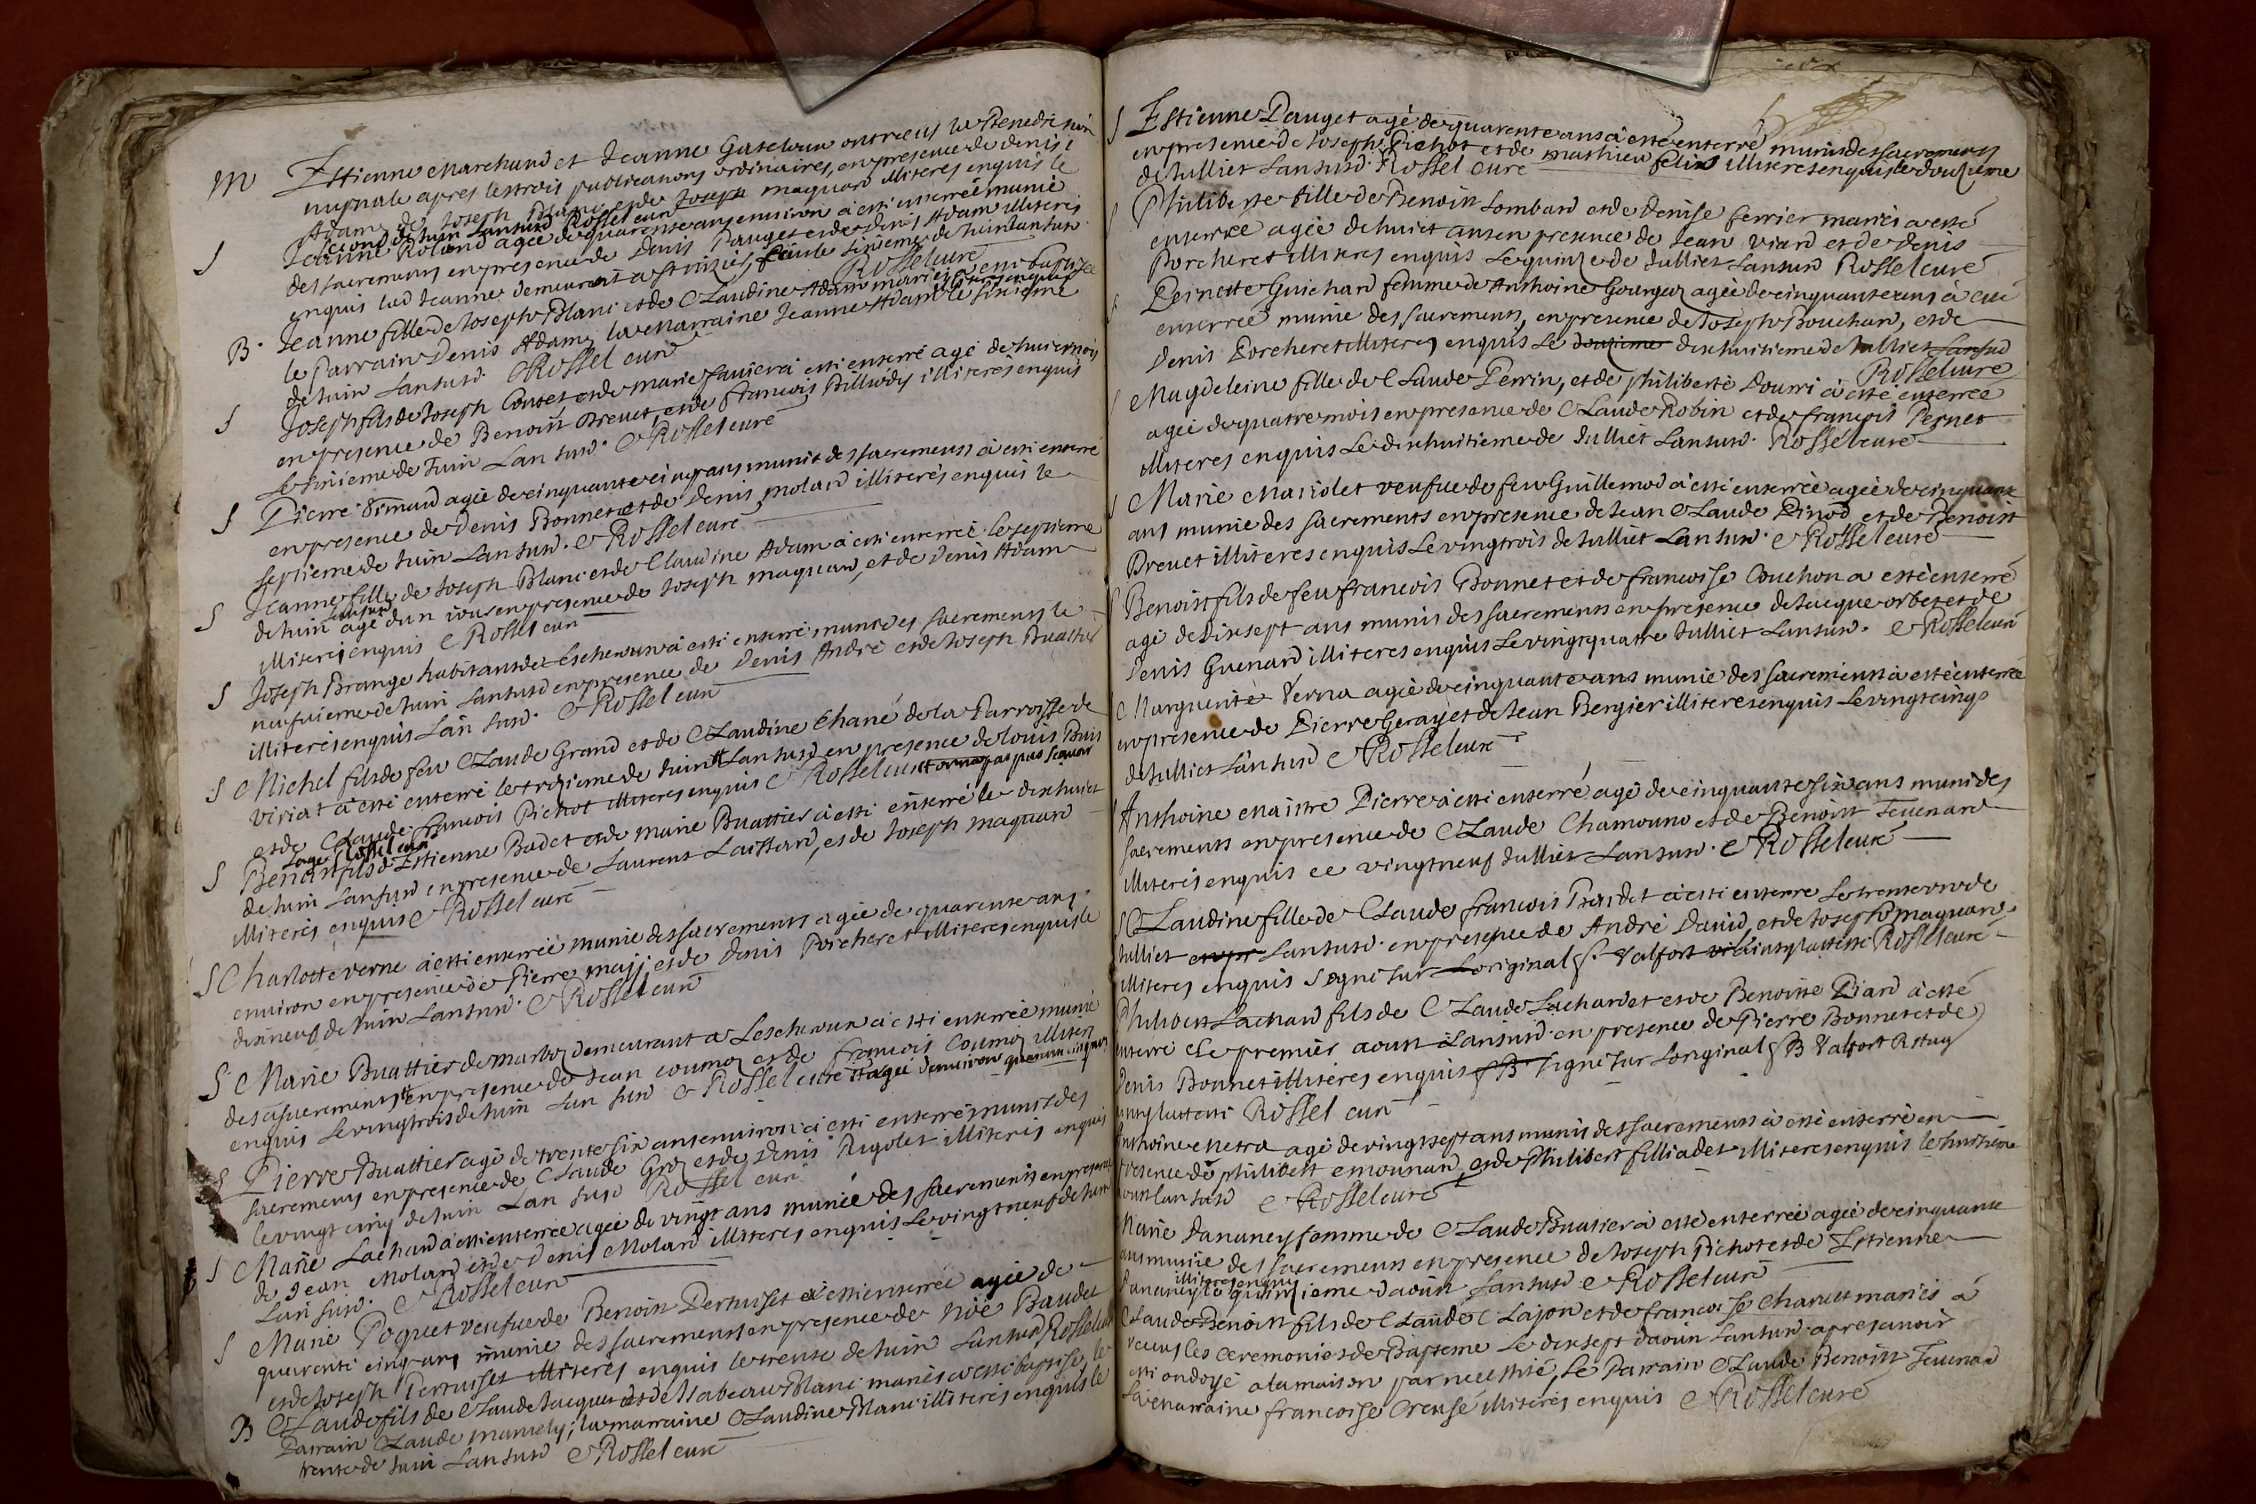 M Estienne Marchand et Jeanne Gatelour ont receus la Benedn
nuptiale apres les trois publications ordinaires, en presence de Denis
Adam, de Joseph Blanc et de Joseph maquard illiteres enquis le
second de Juin Lansusd. Rossel curé
S Jeanne Roland agée de quarente ans environ à esté enterrée munie
des sacremens en presence de Denis Pauget et de Denis Adam illiteres
enquis lad Jeanne demeurant a le sixieme de Juin lansusd
Rossel curé
B. Jeanne fille de Joseph Blanc et de Claudine Adam mariés a esté baptisée
le parrain Denis Adam, la Marraine Jeanne Adam illiteres enquis le sixieme
de Juin Lansusd. Rossel curé
S Joseph fils de Joseph Contet et de Marie favier à esté enterré agé de huict mois
en presence de Benoist Brevet, et de francois Billiody illiteres enquis
le sixieme de Juin Lan susd. Rossel curé
S Pierre agée de cinquante cinq ans munis des sacremens à esté enterré
en presence de Denis Bonnet et de Denis molard illiteres enquis le
septieme de Juin Lansusd. Rossel curé
S Jeanne fille de Joseph Blanc et de Claudine Adam à esté enterrée le septieme
de Juin lansusd agé d'un iour en presence de Joseph maquard, et de Denis Adam
illiteres enquis Rossel curé
S Joseph Brange habitant de Lescheroux à esté enterré muni des sacremens le
neufvieme de Juin lansusd en presence de Denis André et de Joseph Buattier
illiteres enquis Lan susd. Rossel curé
S Michel fils de feu Claude Grand et de Claudine Chané de la Parroisse de
viriat à esté enterré le trezieme de Juin Lansusd en presence de louis Buis
et de Claude francois Pichot illiteres enquis Rossel curé
Rossel curé
S Benoist fils d'Estienne Badet et de Marie Buattier à esté enterré le dixhuict
de Juin Lansusd en presence de Laurent Laissard, et de Joseph maquard
illiteres enquis Rossel curé
S Charlotte verne à esté enterrée munie des sacrements agée de quarente ans
environ en presence de Pierre majj, et de Denis Porcheret illiteres enquis le
dixneuf de Juin Lansusd. Rossel curé
S Marie Buattier de marboz demeurant a Lescheroux à esté enterrée munie
des sacremens en presence de Jean coumoz et de francois Coumoz illiteres
enquis le vingtrois de Juin Lan susd Rossel curé agée d'environ quarente cinq ans
S Pierre Buattier agé de trente six ans environ à esté enterré munis des
sacremens en presence de Claude Groz et de Denis Rigolet illiteres enquis
le vingt cinq de Juin Lan susd Rossel curé
S Marie Lachard à esté enterrée agée de vingt ans munie des sacrements en presence
de Jean Molard et de Denis Molard illiteres enquis Le vingt neuf de Juin
Lan susd. Rossel curé
S Marie Poquet veufue de Benoist Pertusset à esté enterrée agée de
quarente cinq ans munie des sacremens en presence de Noé Baudet
et de Joseph Pertusset illiteres enquis le trente de Juin Lansusd Rossel curé
B Claude fils de Claude Jacquet et de Isabeau Blanc mariés a esté baptisé le
Parrain Claude mamely, la marraine Claudine Blanc illiteres enquis le
trente de Juin Lansusd Rossel curé
S Estienne Pauget agé de quarente ans à esté enterré munis des sacremens
en presence de Joseph Pichot et de mathieu felix illiteres enquis le douzieme
de Julliet Lansusd. Rossel curé
Philiberte fille de Benoist Lombard et de Denise ferrier mariés a esté
enterrée agée de huict ans en presence de Jean viard et de Denis
Porcheret illiteres enquis Le quinze de Julliet Lansusd Rossel curé
Peirette Guichard femme de Anthoine Gourgez agée de cinquante ans à esté
enterrée munie des sacremens, en presence de Joseph Bouchard, et de
Denis Porcheret illiteres enquis Le douzieme dixhuitieme de Julliet Lansusd
Rossel curé
Magdeleine fille de Claude Perrin, et de philiberte Dourri à esté enterrée
agée de quatre mois en presence de Claude Robin et de francois Pernet
illiteres enquis Le dixhuitieme de Julliet Lansusd. Rossel curé
S Marie Mariolet veufue de feu Guillemod à esté enterrée agée de cinquante
ans munie des sacrements en presence de Jean Claude Pinod et de Benoist
Brevet illiteres enquis Le vingtrois de Julliet Lansusd. Rossel curé
S Benoist fils de feu francois Bonnet et de francoise Couchon a esté enterré
agé de dixsept ans munis des sacrements en presence de Jacque orbet et de
Denis Guenard illiteres enquis Le vingtquatre Julliet Lansusd. Rossel curé
Marguerite Verna agée de cinquante ans munie des sacrements à esté enterrée
en presence de Pierre Geray et de Jean Bergier illiteres enquis Le vingt cinq
de Julliet Lansusd Rossel curé
Anthoine Maistre Pierre à esté enterré agé de cinquante six ans muni des
sacrements en presence de Claude Chamouno et de Benoist Tevenard
illiteres enquis ce vingtneuf Julliet Lansusd. Rossel curé
S Claudine fille de Claude francois Bardet à esté enterre Le trente un de
Julliet enpr Lansusd. en presence de André David, et de Joseph maquard
illiteres enquis Signé sur Loriginal Valfort ainsy lattesté Rossel curé
Philibert Lachard fils de Claude Lachard et et de Benoitte Piard à esté
enterré Le premier aoust Lansusd. en presence de Pierre Bonnet et de
Denis Bonnet illiteres enquis signé sur Loriginal B Valfort
ainsy lattesté Rossel curé
Anthoine Metra agé de vingtsept ans munis des sacremens à esté enterré en
presence de philibert emounard et de Philibert filliadet illiteres enquis le huitieme
aoust lansusd Rossel curé
Marie Dananey femme de Claude Buatier à esté enterrée agée de cinquante
ans munie des sacremens en presence de Joseph Pichot et de Estienne
Dananey illiteres enquis Le quinzieme d'aoust Lansusd Rossel curé
Claude Benoist fils de Claude Lajon et de francoise Charuet mariés à
receus les ceremonies de Bapteme Le dixsept daoust Lansusd. apres auoir
esté ondoyé a la maison par necessité, Le Parrain Claude Benoist Tevenard
La marraine francoise Creusé illiteres enquis Rossel curé